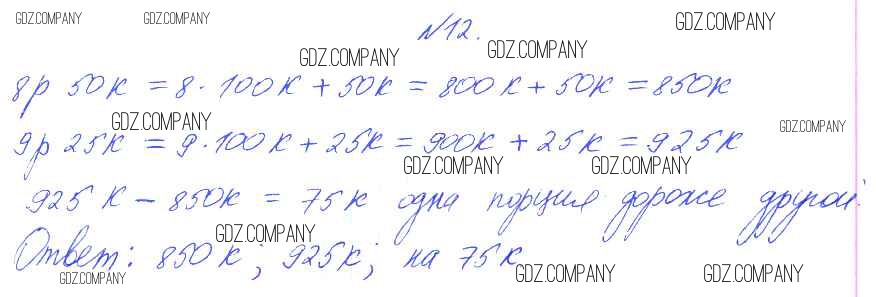 GDZ.COMPANY GDZ.COMPANY GDZ.COMPANY
№12.
GDZ.COMPANY GDZ.COMPANY
8р 50к = 8 · 100к + 50к = 800к + 50к = 850к
GDZ.COMPANY GDZ.COMPANY
9р 25к = 9 · 100к + 25к = 900к + 25к = 925к
GDZ.COMPANY GDZ.COMPANY
925к – 850к = 75к одна порция дороже другой.
GDZ.COMPANY
Ответ: 850к; 925к; на 75к
GDZ.COMPANY GDZ.COMPANY GDZ.COMPANY